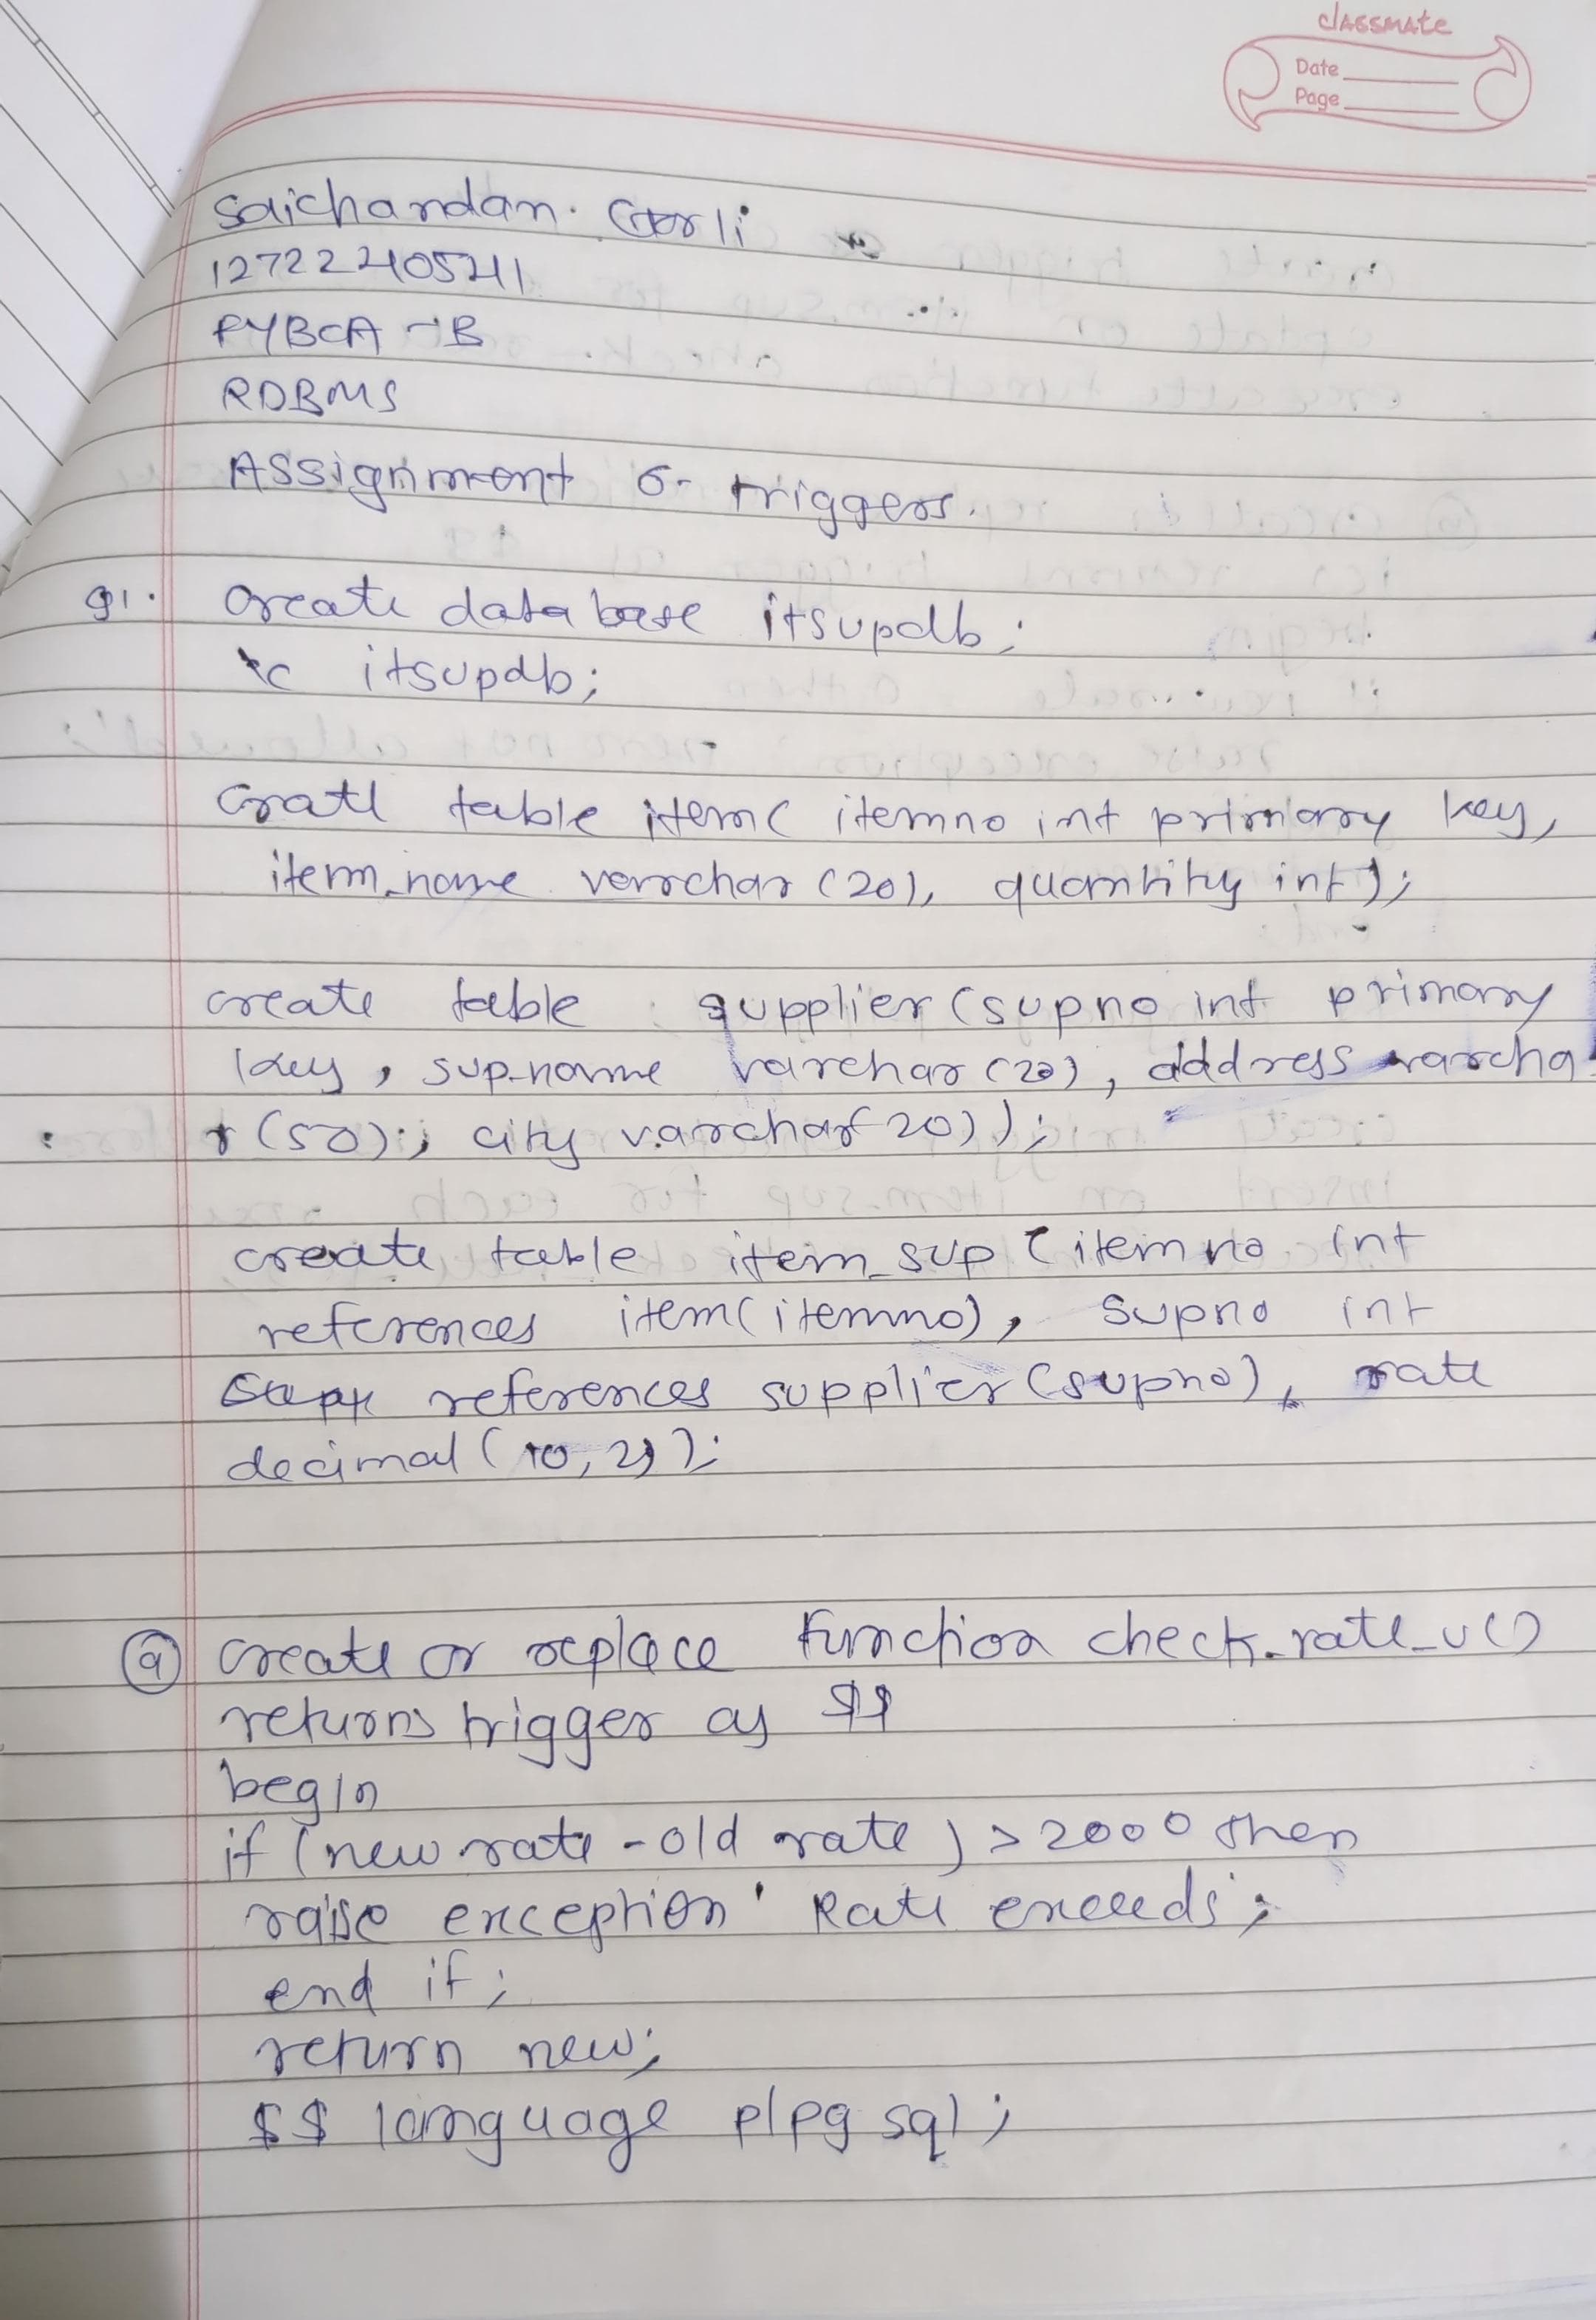 classmate
Date
Page
Saichandan. Gorli
12722240541
FYBCA -B
RDBMS
Assignment 6- triggers.
Q1. create database itsupdb;
\c itsupdb;
cratl table item( itemno int primary key,
item_name varchar (20), quantity int);
create table supplier (supno int primary
key, sup_name varchar (20), address varcha
r (50), city varchar(20));
create table item_sup (itemno int
references item(itemno), supno int
references supplier (supno), rate
decimal (10,2));
(a) create or replace function check_rate_u()
returns trigger as $$
begin
if (new rate - old rate) > 2000 then
raise exception ' Rate exceeds';
end if;
return new;
$$ language plpg sql;